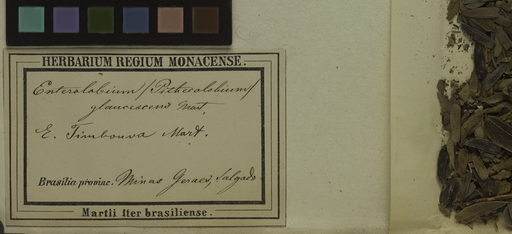 HERBARIUM REGIUM MONACENSE.
Enterolobium /Pithecolobium/
glaucescens Mart.
E. Timbouva Mart.
Brasilia provinc. Minas Geraes, Salgado
Martii Iter brasiliense.